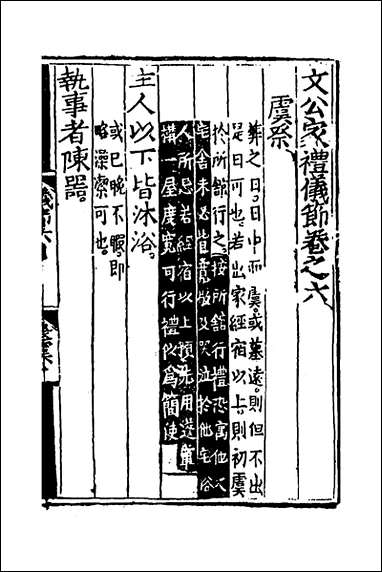 文公家禮儀節卷之六
虞祭
葬之日。日中而虞。或墓遠。則但不出
是日可也。若出家經宿以上。則初虞
於所館行之 按所館行禮恐寓他人
宅舍未必皆寬敞又哭泣於他宅俗
人所忌若經宿以上預先用
搆一屋度寬可行禮似爲簡便
主人以下皆沐浴。
或已晚不暇。即
略澡潔可也。
執事者陳器。